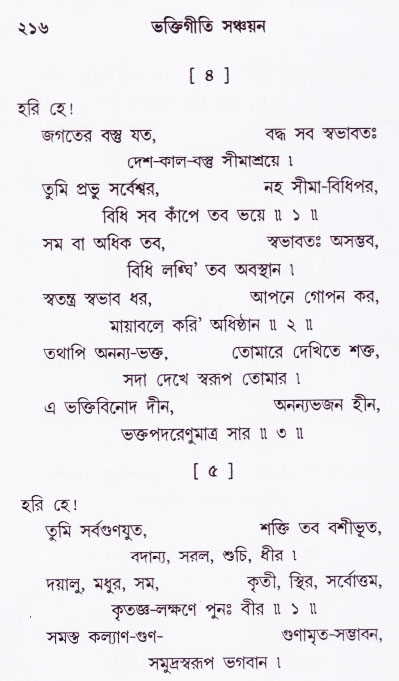 ২১৬ ভক্তিগীতি সঞ্চয়ন
[ ৪ ]
হরি হে !
জগতের বস্তু যত, বদ্ধ সব স্বভাবতঃ
দেশ-কাল-বস্তু সীমাশ্রয়ে ।
তুমি প্রভু সর্বেশ্বর, নহ সীমা-বিধিপর,
বিধি সব কাঁপে তব ভয়ে ॥ ১ ॥
সম বা অধিক তব, স্বভাবতঃ অসম্ভব,
বিধি লঙ্ঘি’ তব অবস্থান ।
স্বতন্ত্র স্বভাব ধর, আপনে গোপন কর,
মায়াবলে করি’ অধিষ্ঠান ॥ ২ ॥
তথাপি অনন্য-ভক্ত, তোমারে দেখিতে শক্ত,
সদা দেখে স্বরূপ তোমার ।
এ ভক্তিবিনোদ দীন, অনন্যভজন হীন,
ভক্তপদরেণুমাত্র সার ॥ ৩ ॥
[ ৫ ]
হরি হে !
তুমি সর্বগুণযুত, শক্তি তব বশীভূত,
বদান্য, সরল, শুচি, ধীর ।
দয়ালু, মধুর, সম, কৃতী, স্থির, সর্বোত্তম,
কৃতজ্ঞ-লক্ষণে পুনঃ বীর ॥ ১ ॥
সমস্ত কল্যাণ-গুণ- গুণামৃত-সম্ভাবন,
সমুদ্রস্বরূপ ভগবান ।